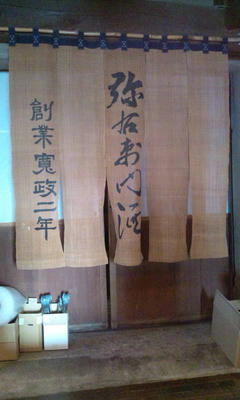 弥右衛門酒
創業寛政二年